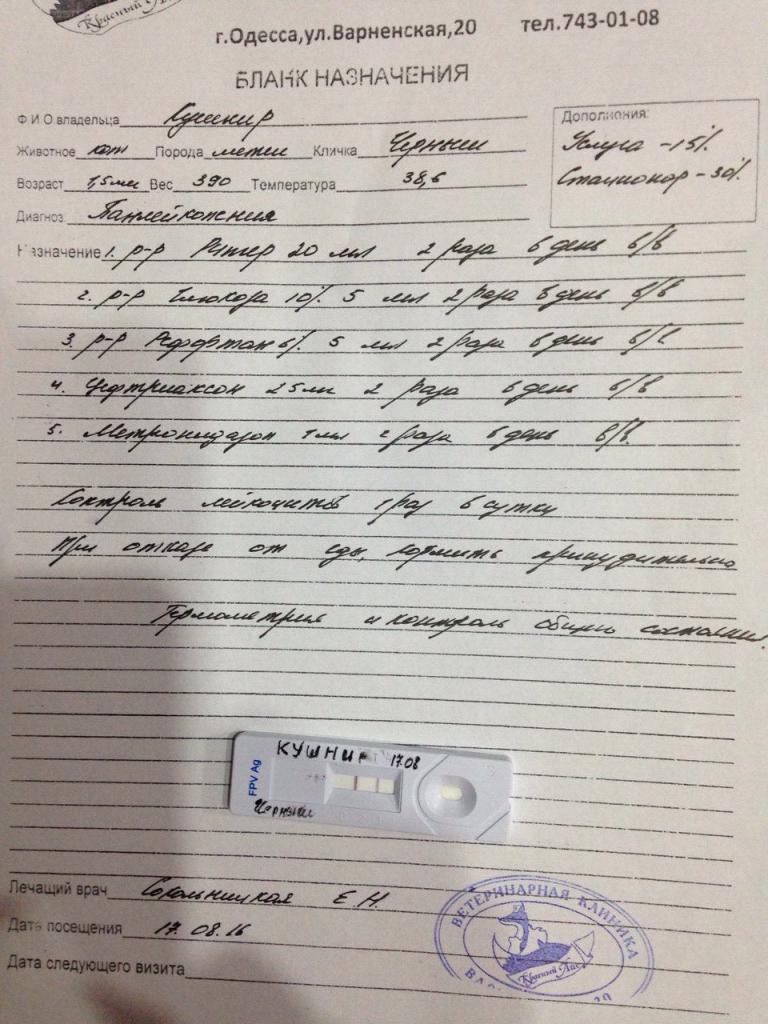 Красный Лис
г.Одесса,ул.Варненская,20 тел.743-01-08
БЛАНК НАЗНАЧЕНИЯ
Ф И О владельца Кушнир
Животное кот Порода метис Кличка Черныш
Возраст 1,5 мес Вес 390 Температура 38,6
Диагноз Панлейкопения
Дополнения:
Услуга -15%
Стационар - 30%
Назначение 1. р-р Рингер 20 мл 2 раза в день в/в
2. р-р Глюкоза 10% 5 мл 2 раза в день в/в
3. р-р Рефортан 6% 5 мл 2 раза в день в/в
4. Цефтриаксон 25мг 2 раза в день в/в
5. Метронидазол 1мл 2 раза в день в/в.
Контроль лейкоцитов 1 раз в сутки
При отказе от еды, кормить принудительно
Термометрия и контроль общего состояния.
КУШНИР 17.08
FPV Ag
Черныш
Лечащий врач Сокольницкая Е.Н.
Дата посещения 17.08.16
Дата следующего визита
ВЕТЕРИНАРНАЯ КЛИНИКА
Красный Лис